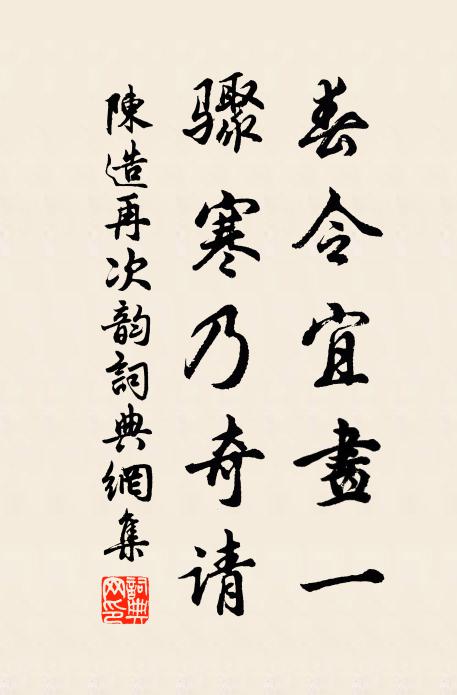 春令宜畫一
驟寒乃奇请
陳造再次韵詞典網集
詞典网印